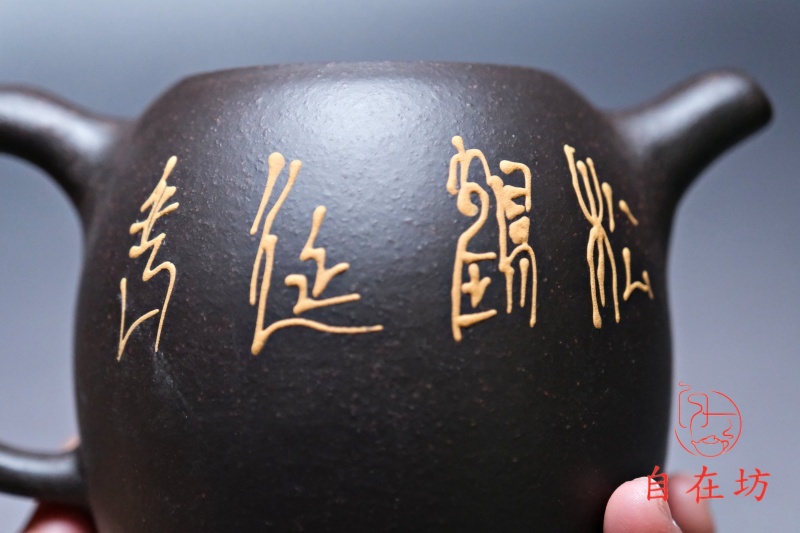 松鶴延壽
自在坊